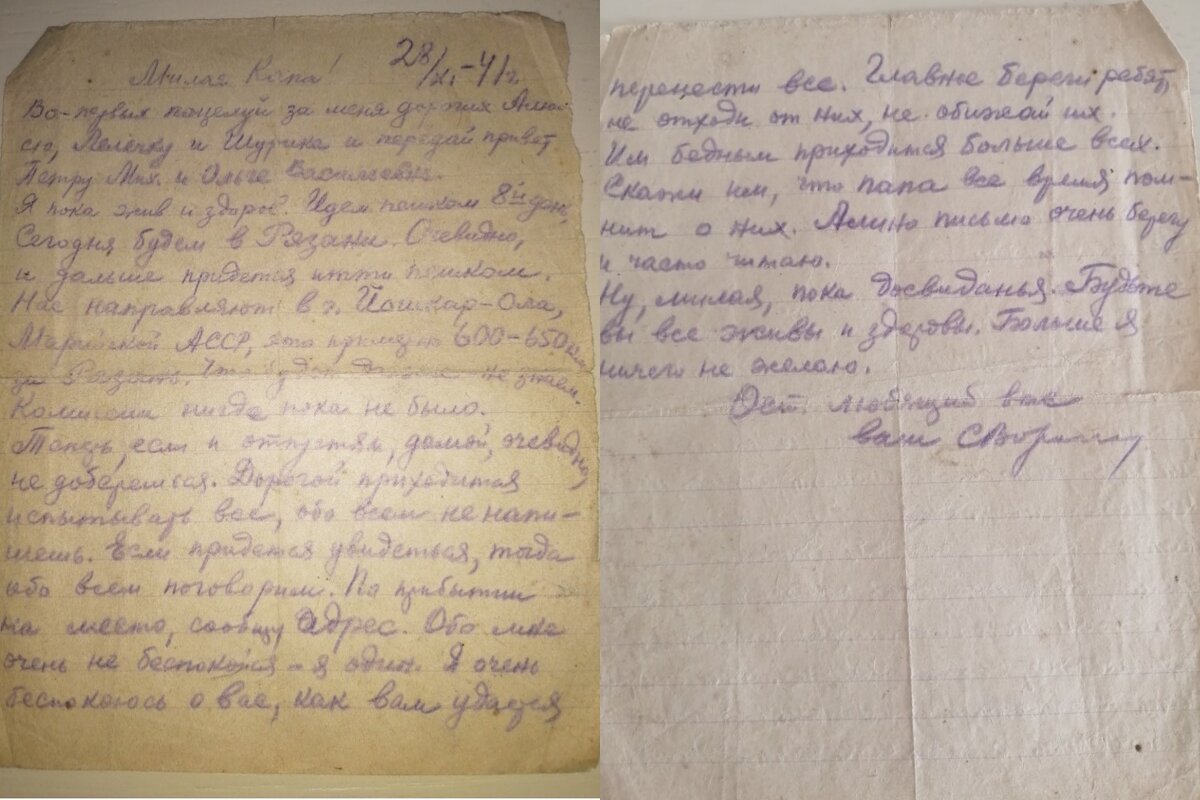 28/XI-41г
Милая Капа!
Во-первых поцелуй за меня дорогих Алю-
сю, Лелечку и Шурика и передай привет
Петру Мих. и Ольге Васильевне.
Я пока жив и здоров. Идем пешком 8й день,
Сегодня будем в Рязани. Очевидно,
и дальше придется итти пешком.
Нас направляют в г. Йошкар-Ола,
Марийской АССР, это примерно 600-650 км
за Рязань. Что будет дальше не знаем.
Комиссии нигде пока не было.
Теперь, если и отпустят, домой, очевидно,
не доберешься. Дорогой приходится
испытывать все, обо всем не напи-
шешь. Если придется увидеться, тогда
обо всем поговорим. По прибытии
на место, сообщу адрес. Обо мне
очень не беспокойся - я один. Я очень
беспокоюсь о вас, как вам удастся
перенести все. Главное береги ребят,
не отходи от них, не обижай их.
Им бедным приходится больше всех.
Скажи им, что папа все время пом-
нит о них. Алино письмо очень берегу
и часто читаю.
Ну, милая, пока досвиданья. Будьте
вы все живы и здоровы. Больше я
ничего не желаю.
Ост. любящий вас
ваш